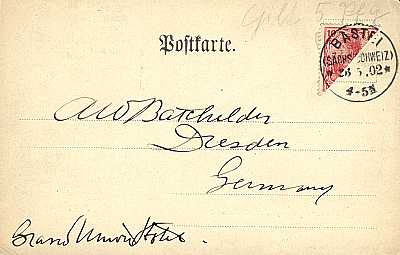 Postkarte.
10
BASTEI
(SÄCHS. SCHWEIZ)
* 23 5.02 *
4-5N
A W Batchelder
Dresden
Germany
Grand Union Hotel.